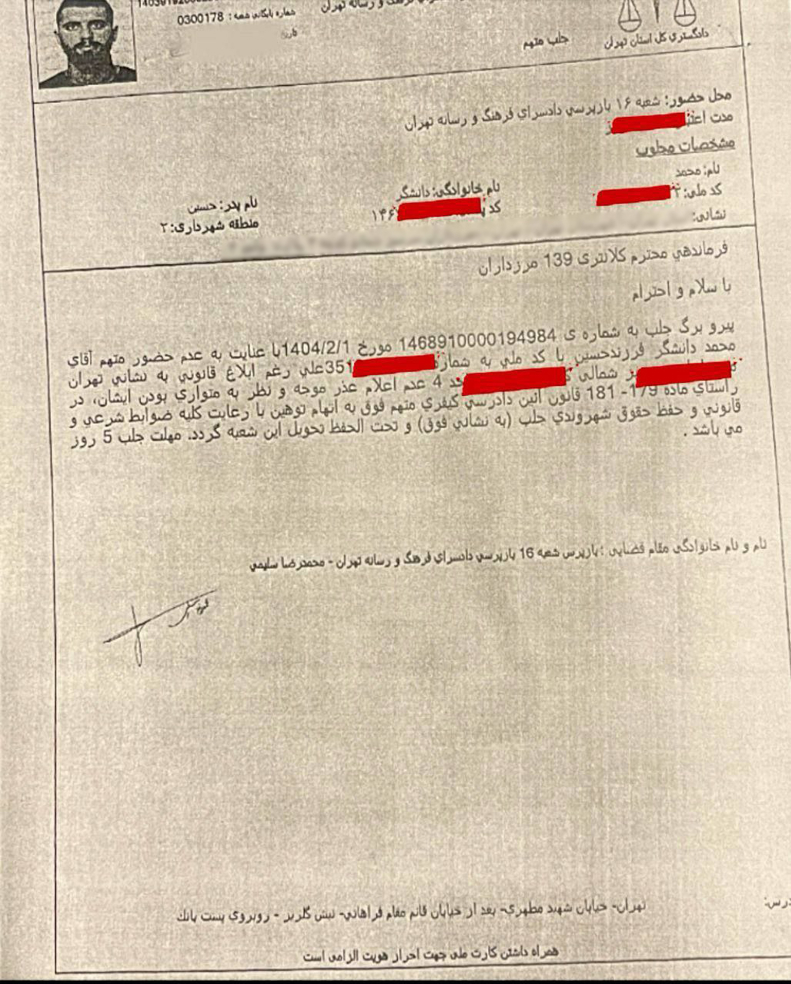 فرهنگ و رسانه تهران
شماره بایگانی شعبه : 0300178
تاریخ
دادگستری کل استان تهران
جلب متهم
محل حضور: شعبه ۱۶ بازپرسی دادسرای فرهنگ و رسانه تهران
مدت
مشخصات مجلوب
نام: محمد نام خانوادگی: دانشگر نام پدر: حسین
کد ملی: کد ۱۴۶ منطقه شهرداری: ۲
نشانی:
فرماندهی محترم کلانتری 139 مرزداران
با سلام و احترام
پیرو برگ جلب به شماره ی 1468910000194984 مورخ 1404/2/1با عنایت به عدم حضور متهم آقای
محمد دانشگر فرزندحسین با کد ملی به شماره 351علی رغم ابلاغ قانونی به نشانی تهران
شمالی 4 عدم اعلام عذر موجه و نظر به متواری بودن ایشان، در
راستای ماده 179- 181 قانون آئین دادرسی کیفری متهم فوق به اتهام توهین با رعایت کلیه ضوابط شرعی و
قانونی و حفظ حقوق شهروندی جلب (به نشانی فوق) و تحت الحفظ تحویل این شعبه گردد. مهلت جلب 5 روز
می باشد .
نام و نام خانوادگی مقام قضایی : بازپرس شعبه 16 بازپرسی دادسرای فرهنگ و رسانه تهران - محمدرضا سلیمی
تهران- خیابان شهید مطهری- بعد از خیابان قائم مقام فراهانی- نبش گلریز - روبروی پست بانک
همراه داشتن کارت ملی جهت احراز هویت الزامی است